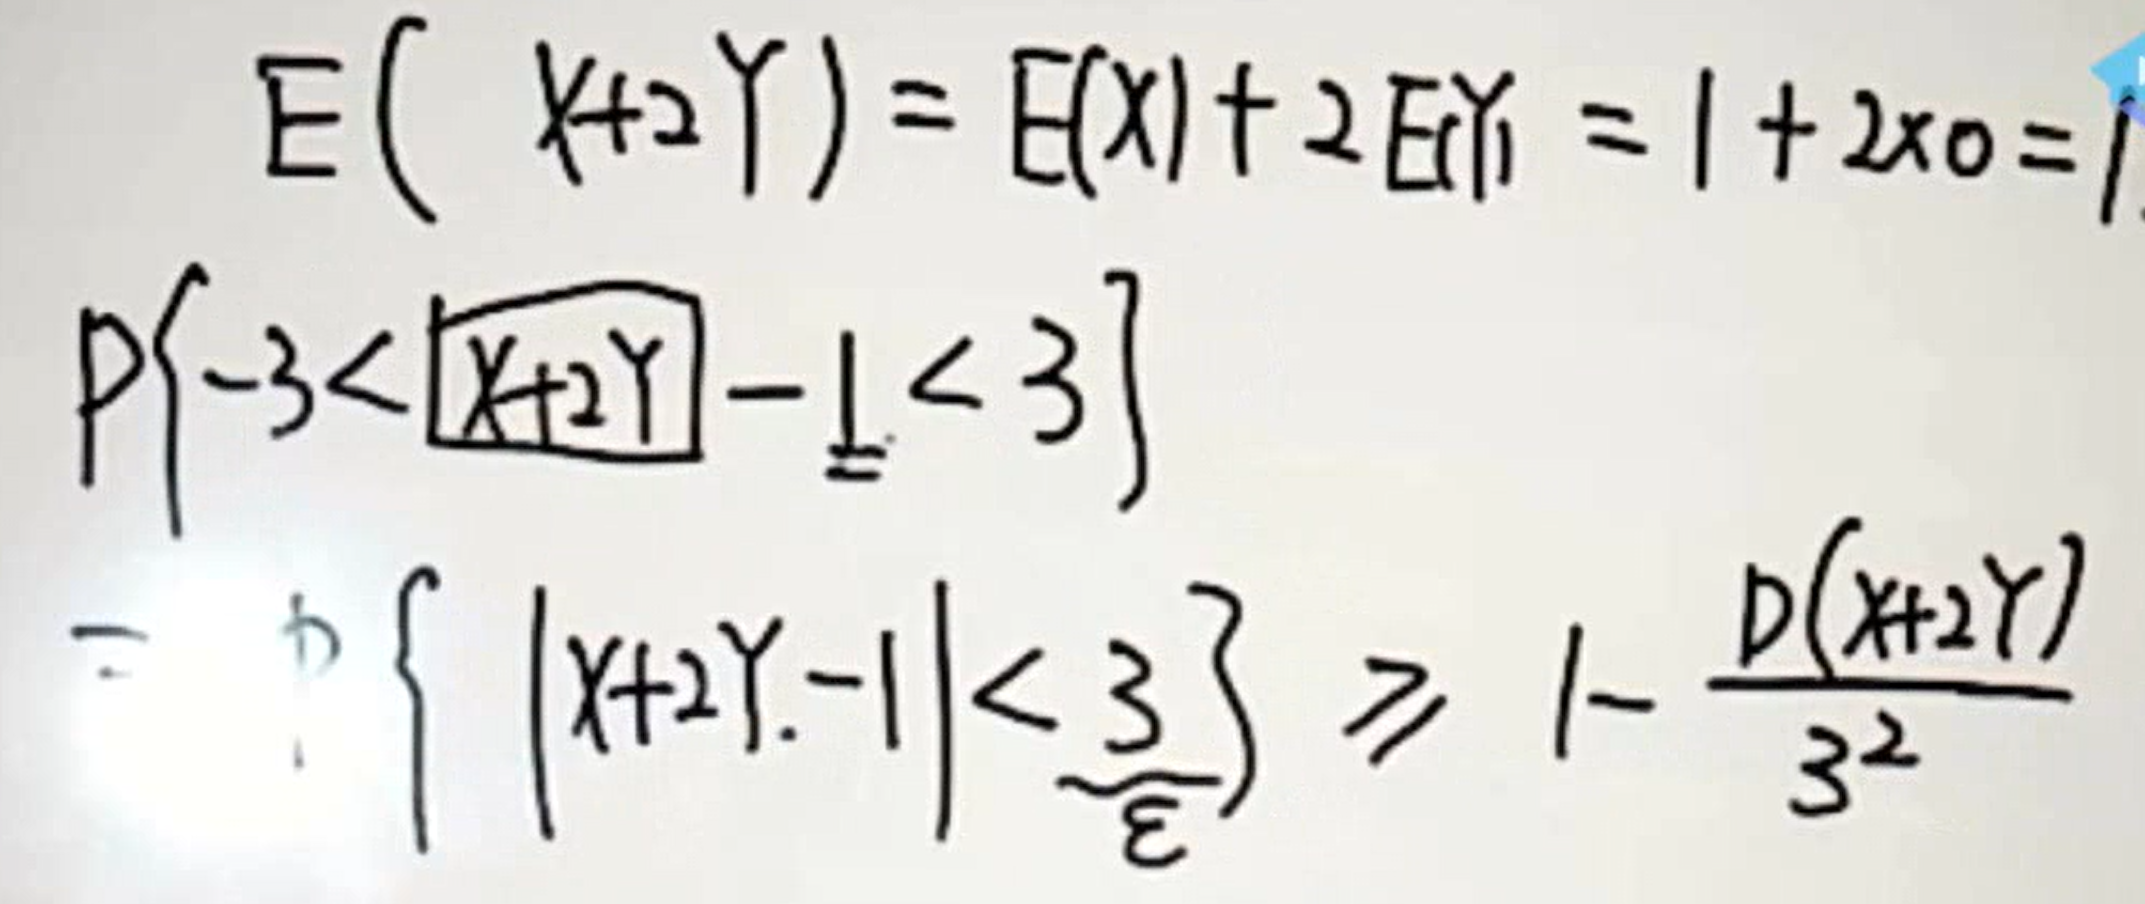 E( X+2Y) = E(X)+2E(Y) = 1+2×0=1.
P{-3<X+2Y-1<3}
= P{ |X+2Y.-1|<3} ≥ 1- D(X+2Y)/3²
ε